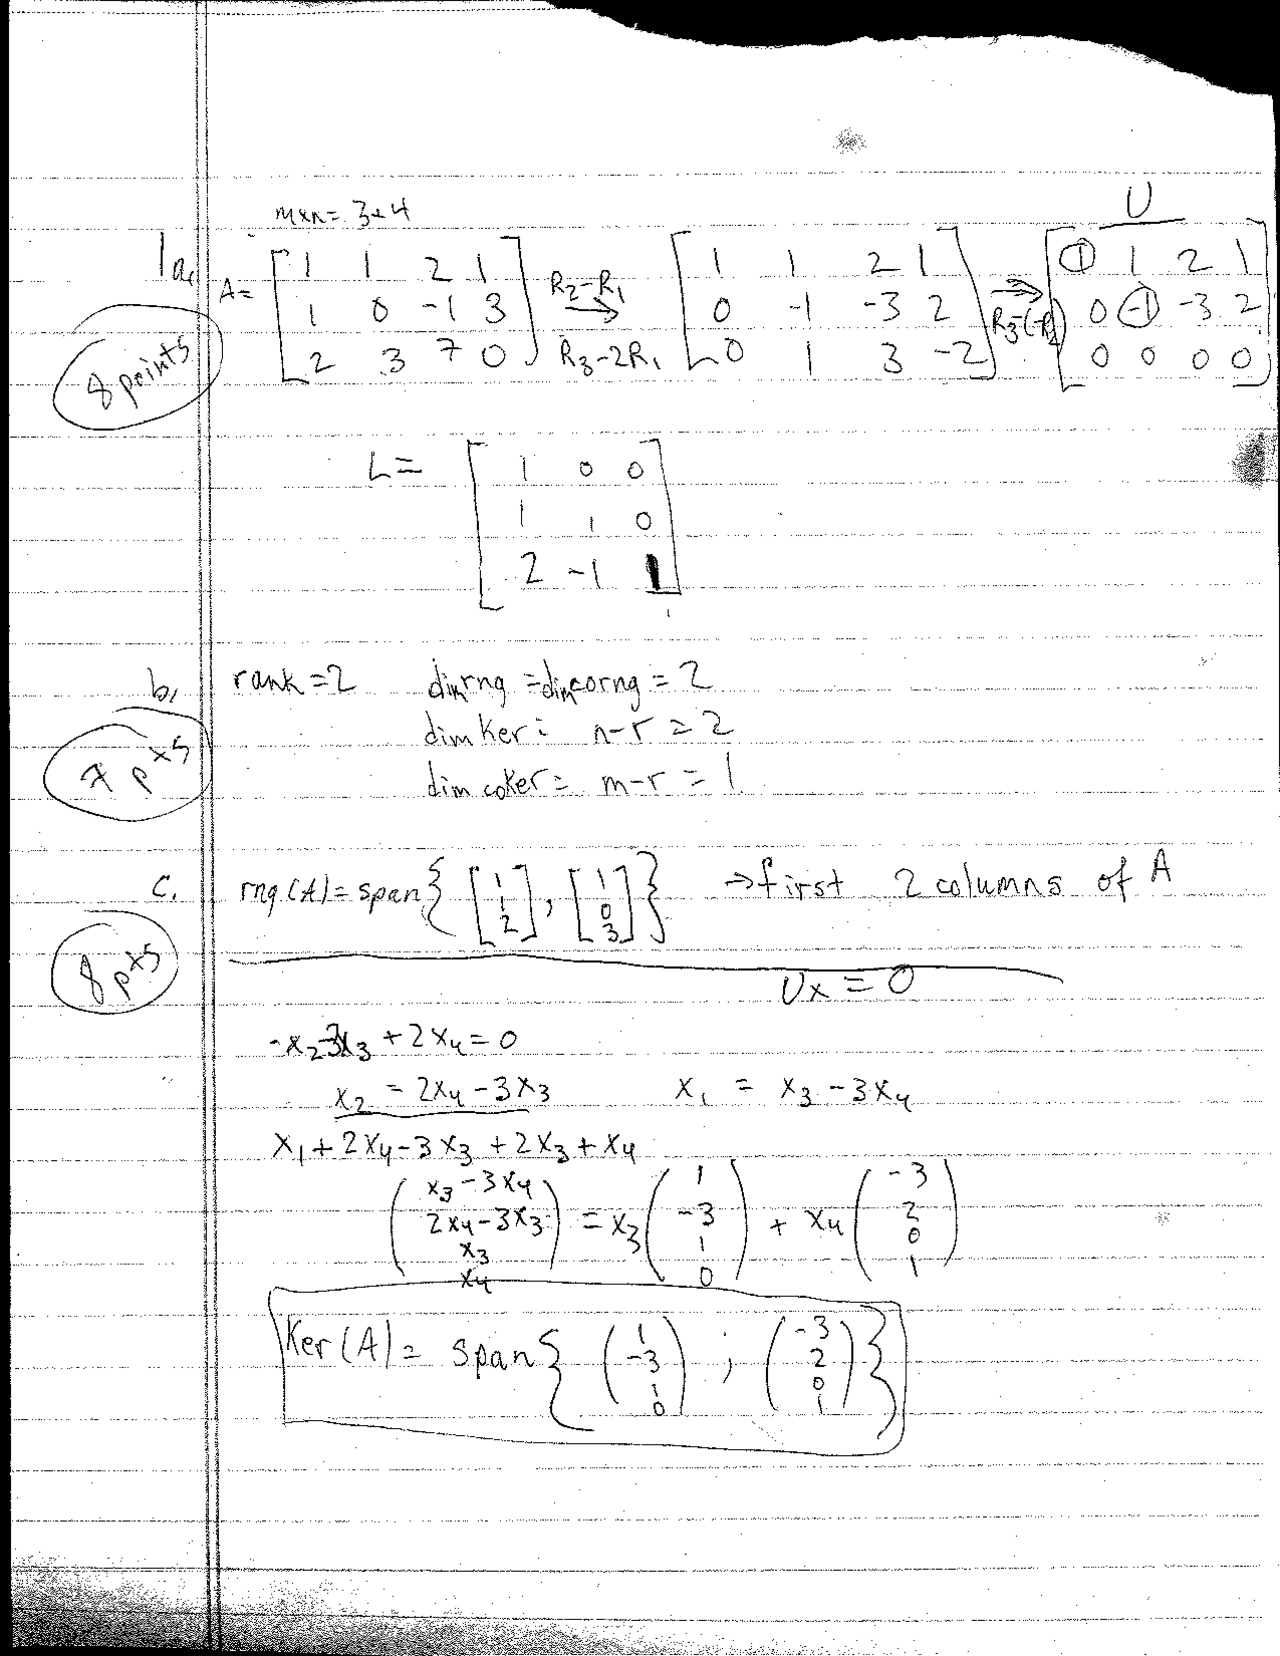 m×n = 3×4
U
1a. A = [ 1 1 2 1 ; 1 0 -1 3 ; 2 3 7 0 ] R2-R1 → R3-2R1 [ 1 1 2 1 ; 0 -1 -3 2 ; 0 1 3 -2 ] → R3-(-R2) [ 1 1 2 1 ; 0 -1 -3 2 ; 0 0 0 0 ]
8 points
L = [ 1 0 0 ; 1 1 0 ; 2 -1 1 ]
b. rank = 2 dim rng = dim corng = 2
dim Ker: n-r = 2
7 pts
dim coker = m-r = 1
c. rng(A) = span { [ 1 1 2 ], [ 1 0 3 ] } → first 2 columns of A
8 pts
Ux = 0
-x2-3x3 + 2x4 = 0
x2 = 2x4 - 3x3 x1 = x3 - 3x4
x1 + 2x4 - 3x3 + 2x3 + x4
( x3 - 3x4 ; 2x4 - 3x3 ; x3 ; x4 ) = x3 ( 1 ; -3 ; 1 ; 0 ) + x4 ( -3 ; 2 ; 0 ; 1 )
Ker(A) = span { ( 1 ; -3 ; 1 ; 0 ) , ( -3 ; 2 ; 0 ; 1 ) }